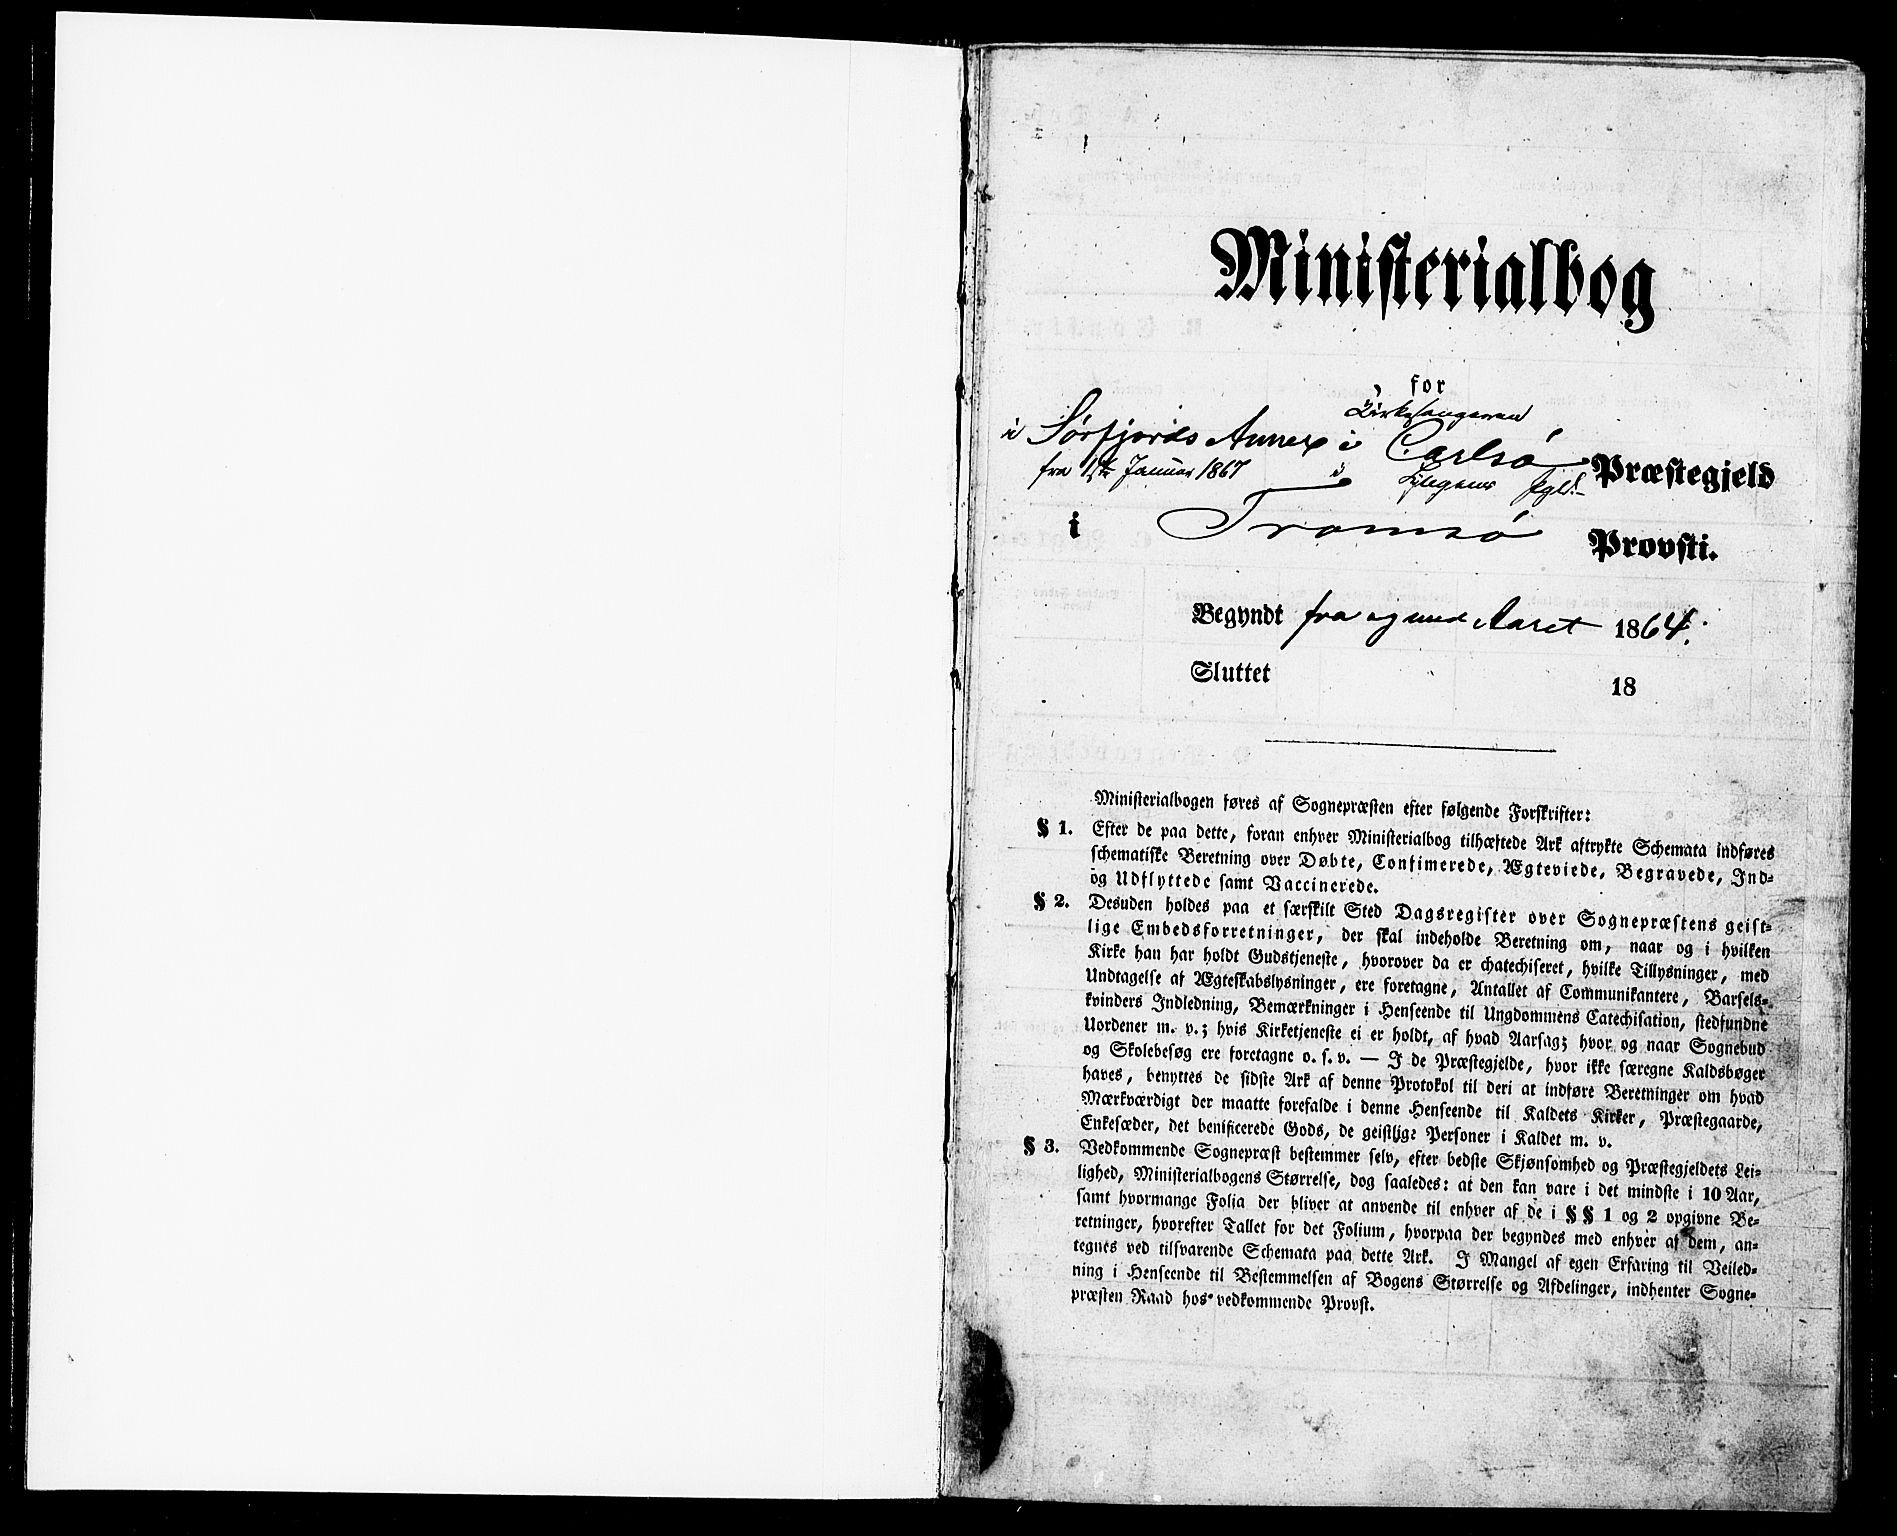 Ministerialbog
for
Kirkesangeren
i Sørfjords Annex i Carlsø Præstegjeld
fra 1ste Januar 1867 i Lyngens Pgld.
i Tromsø Provsti.
Begyndt fra og med Aaret 1864.
Sluttet 18
Ministerialbogen føres af Sognepræsten efter følgende Forskrifter:
§ 1. Efter de paa dette, foran enhver Ministerialbog tilhæftede Ark aftrykte Schemata indføres
schematiske Beretning over Døbte, Confimerede, Ægteviede, Begravede, Ind-
og Udflyttede samt Vaccinerede.
§ 2. Desuden holdes paa et særskilt Sted Dagsregister over Sognepræstens geist-
lige Embedsforretninger, der skal indeholde Beretning om, naar og i hvilken
Kirke han har holdt Gudstjeneste, hvorover da er chatechiseret, hvilke Tillysninger, med
Undtagelse af Ægteskabslysninger, ere foretagne, Antallet af Communikantere, Barsels-
kvinders Indledning, Bemærkninger i Henseende til Ungdommens Catechisation, stedfundne
Uordener m. v.; hvis Kirketjeneste ei er holdt, af hvad Aarsag; hvor og naar Sognebud
og Skolebesøg ere foretagne o. s. v. — I de Præstegjelde, hvor ikke særegne Kaldsbøger
haves, benyttes de sidste Ark af denne Protokol til deri at indføre Beretninger om hvad
Mærkværdigt der maatte forefalde i denne Henseende til Kaldets Kirker, Præstegaarde,
Enkesæder, det benificerede Gods, de geistlige Personer i Kaldet m. v.
§ 3. Vedkommende Sognepræst bestemmer selv, efter bedste Skjønsomhed og Præstegjeldets Lei-
lighed, Ministerialbogens Størrelse, dog saaledes: at den kan vare i det mindste i 10 Aar,
samt hvormange Folia der bliver at anvende til enhver af de i §§ 1 og 2 opgivne Be-
retninger, hvorefter Tallet for det Folium, hvorpaa der begyndes med enhver af dem, an-
tegnes ved tilsvarende Schemata paa dette Ark. I Mangel af egen Erfaring til Veiled-
ning i Henseende til Bestemmelsen af Bogens Størrelse og Afdelinger, indhenter Sogne-
præsten Raad hos vedkommende Provst.